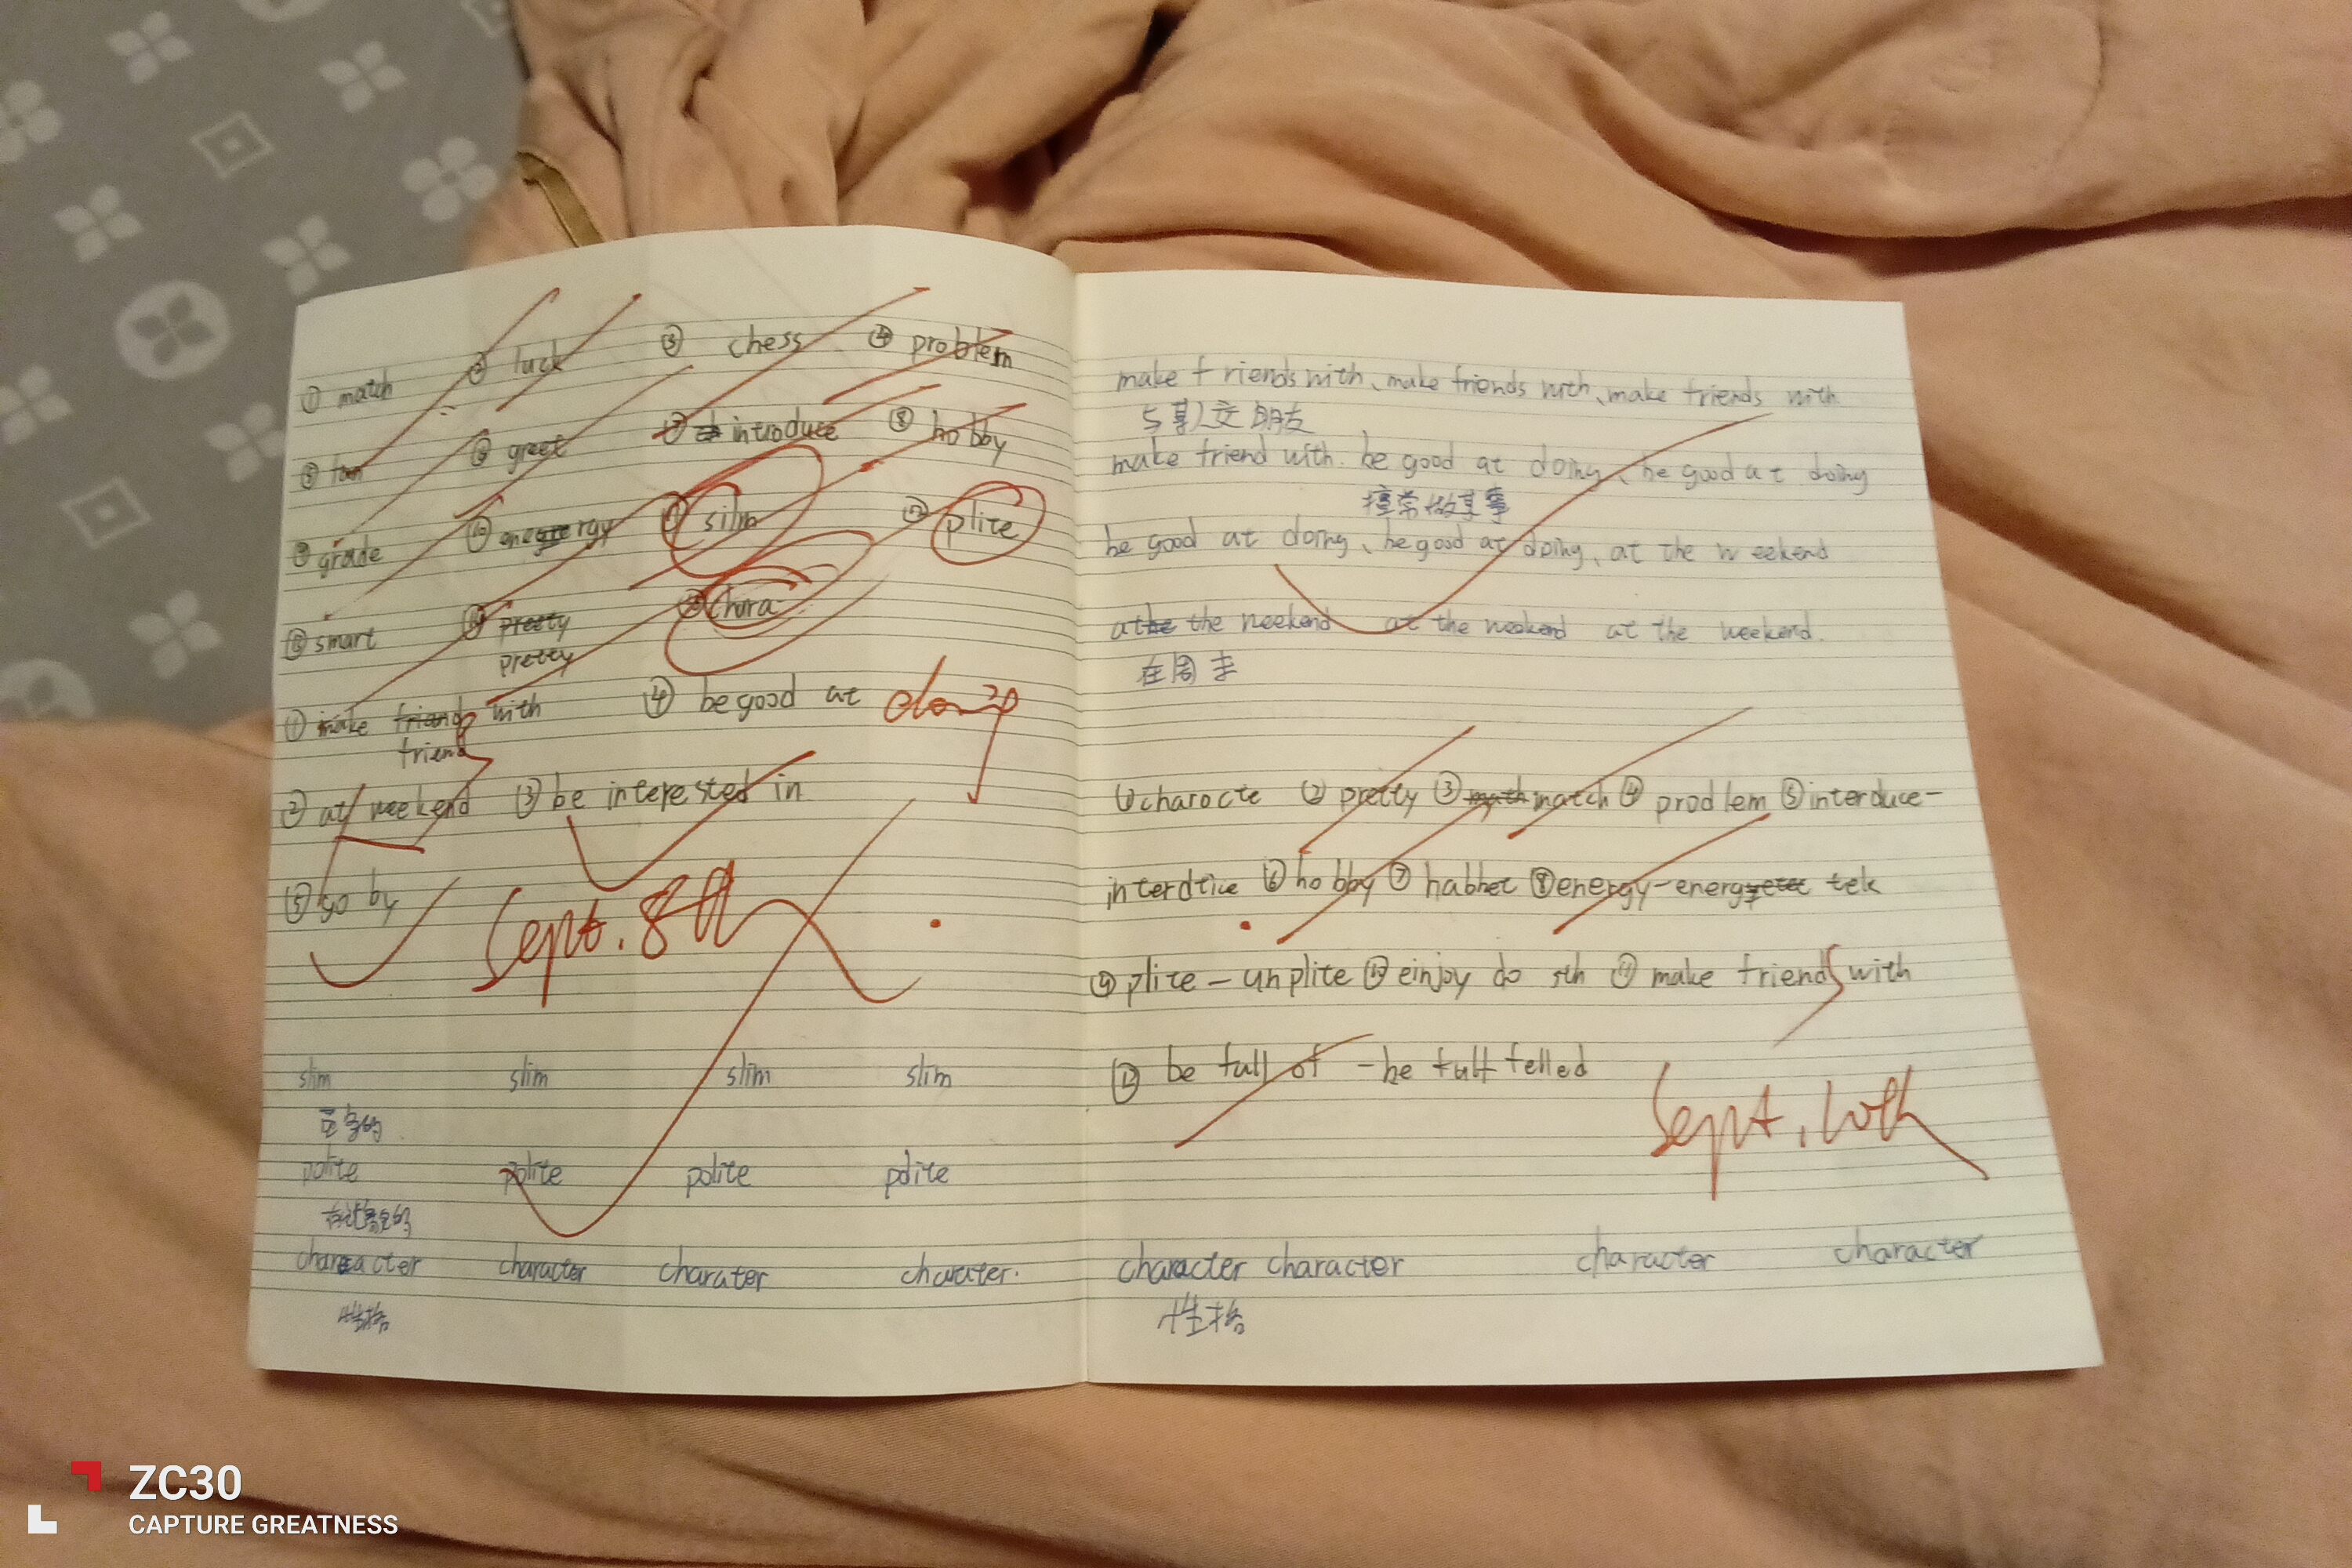 ① match ② luck ③ chess ④ problem
⑤ fan ⑥ greet ⑦ introduce ⑧ hobby
⑨ grade ⑩ energy ⑪ silm ⑫ plite
⑬ smart ⑭ pretty ⑮ chara-
pretty
① make friend with ④ be good at doing
friend
② at weekend ③ be interested in
⑤ go by
Sept. 8th
slim slim slim slim
polite polite polite polite
有礼貌的
character character charater charater.
性格
make friends with、make friends with、make friends with
与某人交朋友
make friend with. be good at doing、be good at doing
擅常做某事
be good at doing、be good at doing、at the weekend
at the weekend at the weekend at the weekend.
在周末
① charocte ② pretty ③ math match ④ prodlem ⑤ interduce-
interdtice ⑥ hobby ⑦ habhet ⑧ energy-energy tek
⑨ plite - unplite ⑩ einjoy do sth ⑪ make friends with
⑫ be full of - be full felled
Sept. 10th
character character character character
性格
ZC30
CAPTURE GREATNESS